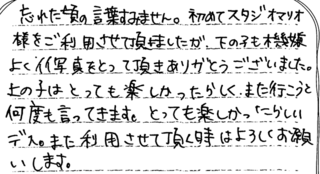 忘れた頃の言葉すみません。初めてスタジオマリオ
様をご利用させて頂きましたが、下の子も機嫌
よくイイ写真をとって頂きありがとうございました。
上の子はとっても楽しかったらしく、また行こうと
何度も言ってきます。とっても楽しかったらしい
デス。また利用させて頂く時はよろしくお願
いします。